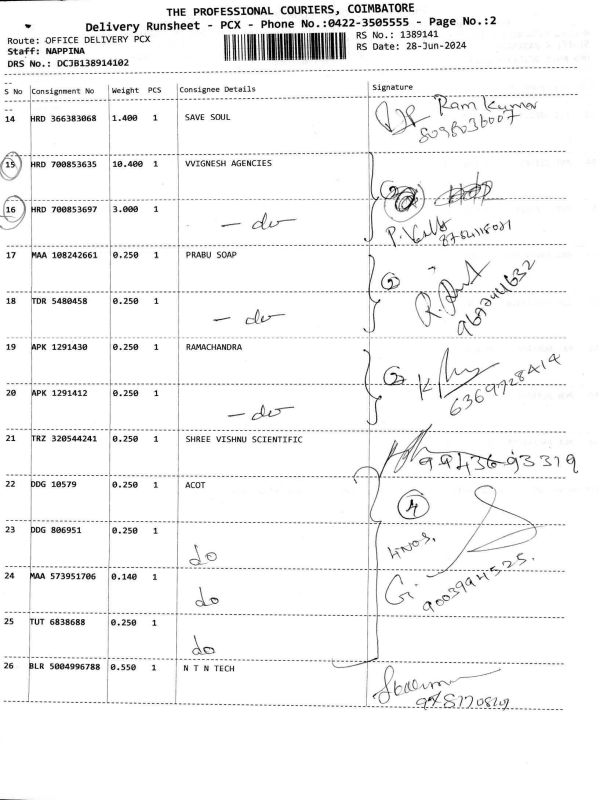 THE PROFESSIONAL COURIERS, COIMBATORE
Delivery Runsheet - PCX - Phone No.:0422-3505555 - Page No.:2
Route: OFFICE DELIVERY PCX
Staff: NAPPINA
DRS No.: DCJB138914102
RS No.: 1389141
RS Date: 28-Jun-2024
S No Consignment No Weight PCS Consignee Details Signature
14 HRD 366383068 1.400 1 SAVE SOUL Ram Kumar
8098036007
15 HRD 700853635 10.400 1 VVIGNESH AGENCIES
16 HRD 700853697 3.000 1 - do
17 MAA 108242661 0.250 1 PRABU SOAP 2
18 TDR 5480458 0.250 1 - do
19 APK 1291430 0.250 1 RAMACHANDRA 2
6369728414
20 APK 1291412 0.250 1 - do
21 TRZ 320544241 0.250 1 SHREE VISHNU SCIENTIFIC 9943693319
22 DDG 10579 0.250 1 ACOT 4
23 DDG 806951 0.250 1 do 4NOS,
24 MAA 573951706 0.140 1 do G.
9003994525.
25 TUT 6838688 0.250 1 do
26 BLR 5004996788 0.550 1 N T N TECH